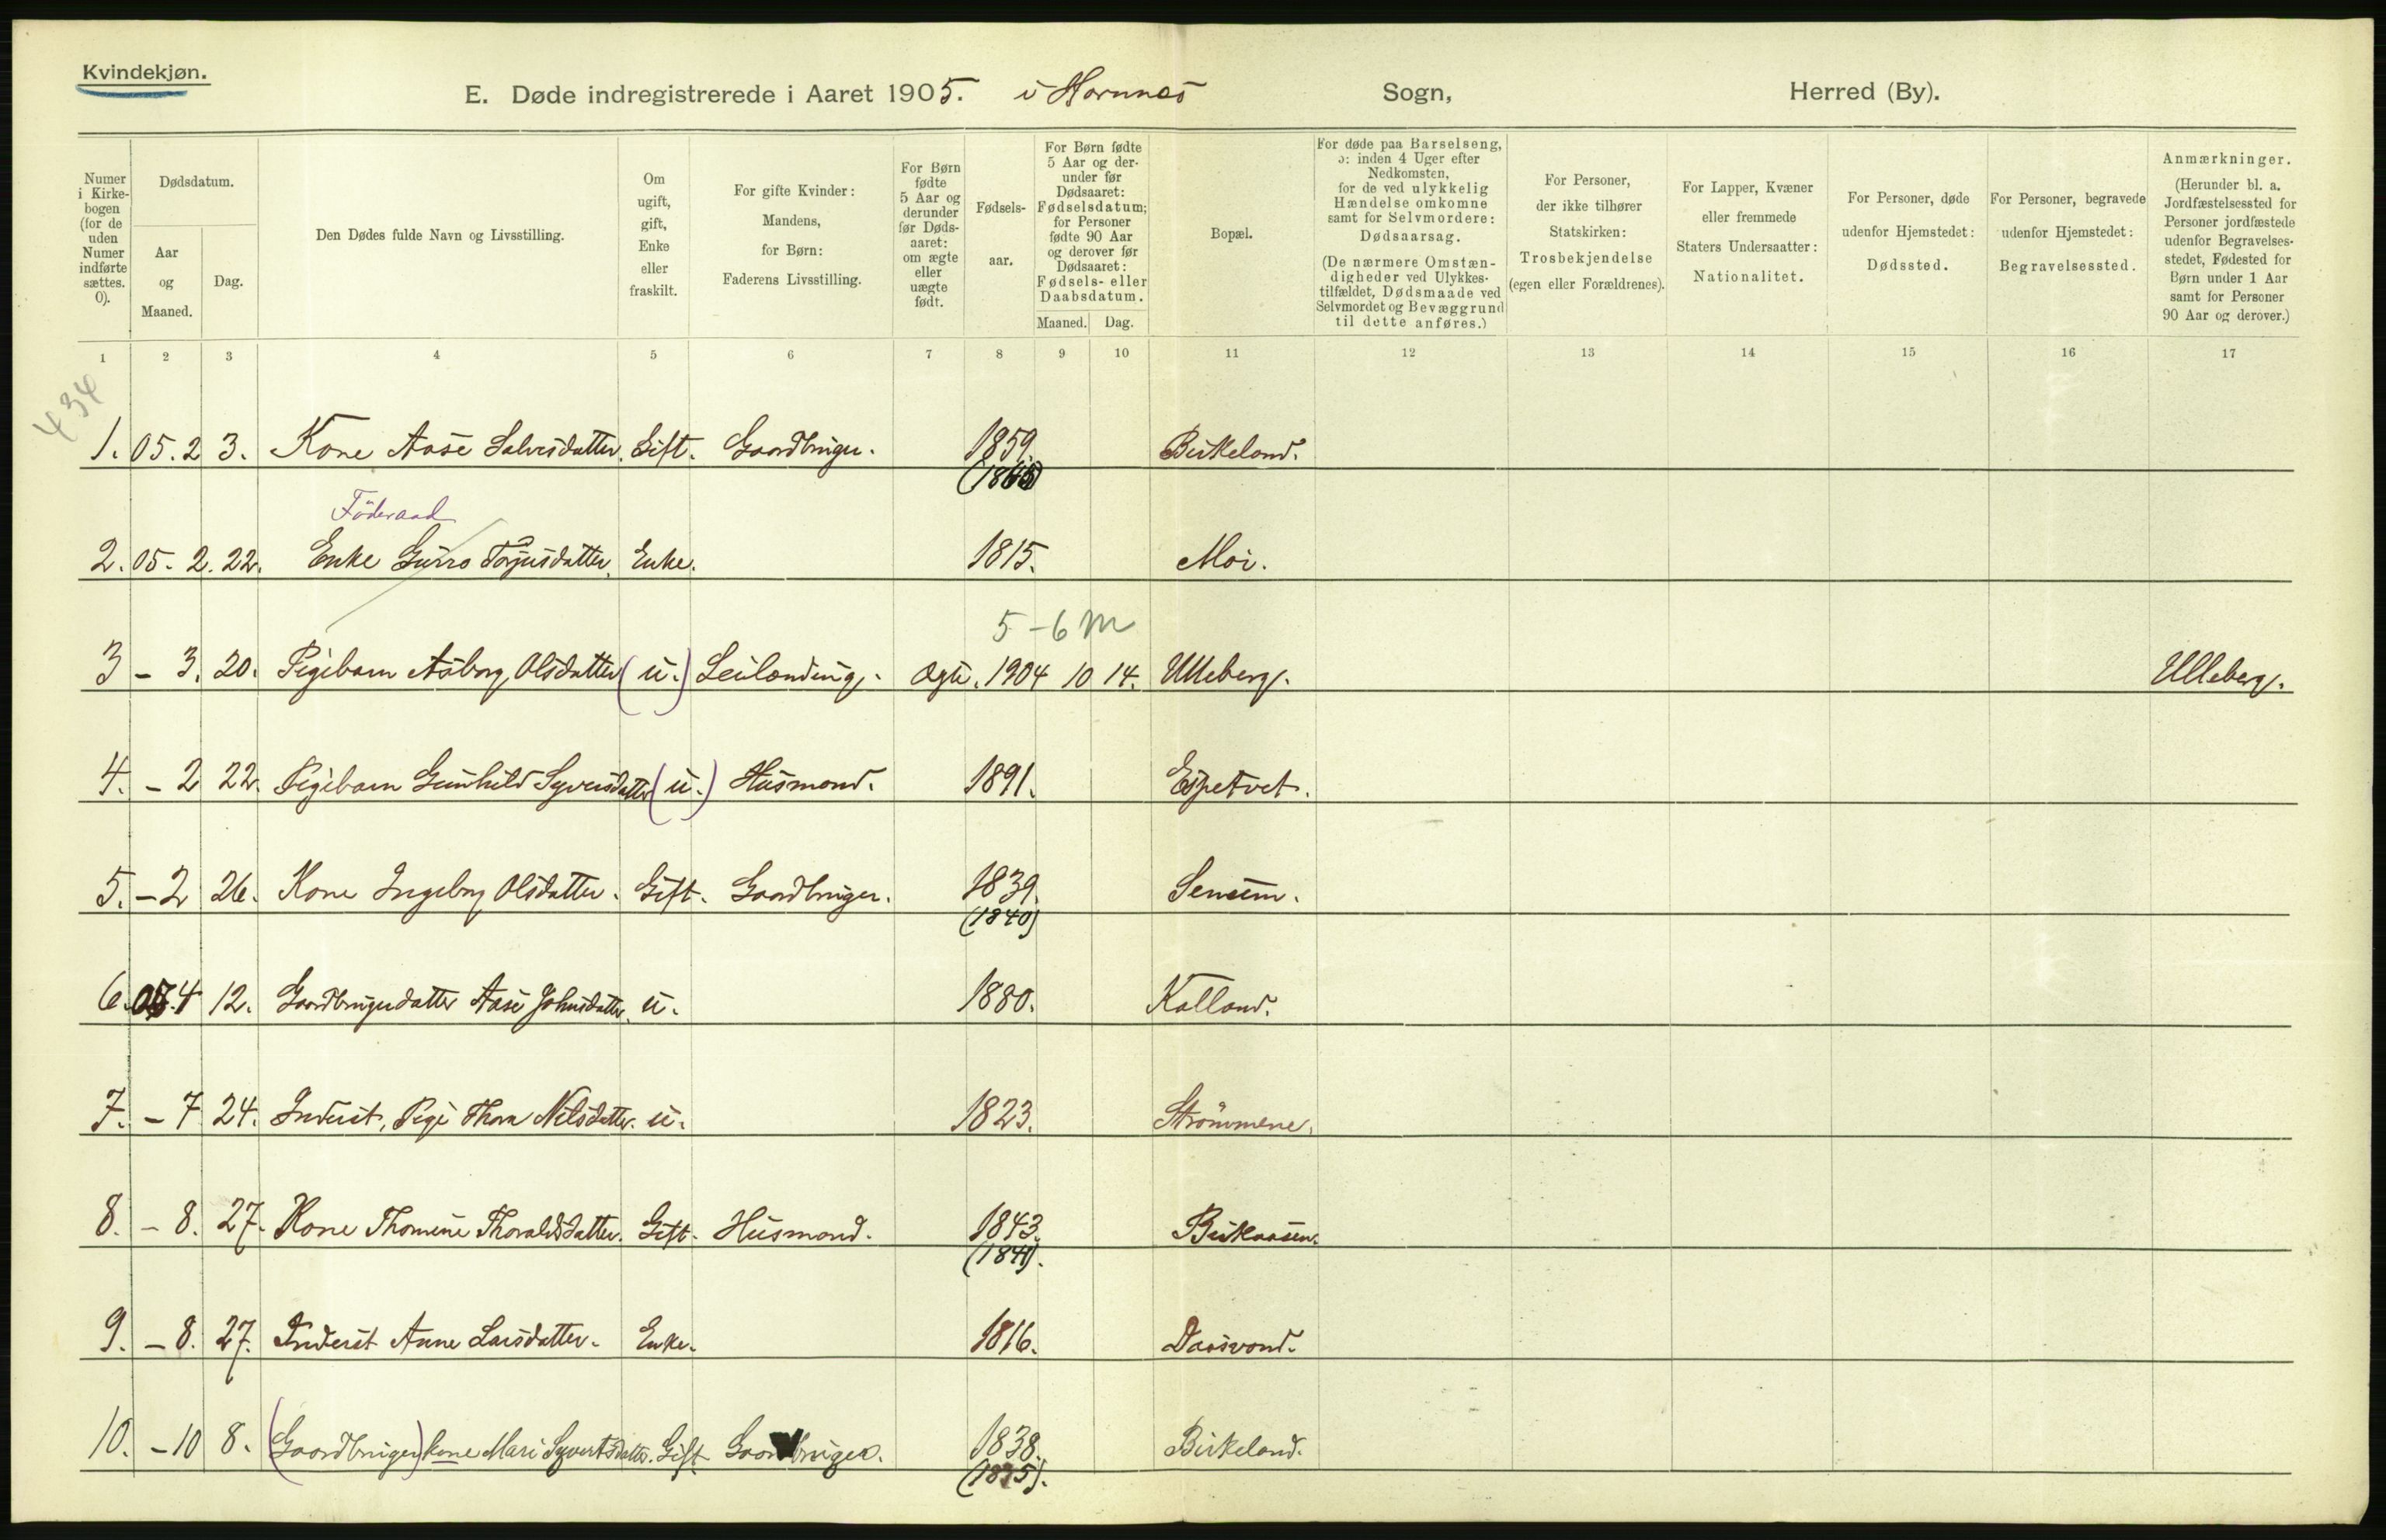 Kvindekjøn.
E. Døde indregistrerede i Aaret 1905. i Hornnes Sogn, Herred (By).
Numer i Kirkebogen (for de uden Numer indførte sættes. 0).
Dødsdatum.
Aar og Maaned.
Dag.
Den Dødes fulde Navn og Livsstilling.
Om ugift, gift, Enke eller fraskilt.
For gifte Kvinder: Mandens, for Børn: Faderens Livsstilling.
For Børn fødte 5 Aar og derunder før Dødsaaret: om ægte eller uægte født.
Fødselsaar.
For Børn fødte 5 Aar og derunder før Dødsaaret: Fødselsdatum; for Personer fødte 90 Aar og derover før Dødsaaret: Fødsels- eller Daabsdatum.
Maaned. Dag.
Bopæl.
For døde paa Barselseng, ɔ: inden 4 Uger efter Nedkomsten, for de ved ulykkelig Hændelse omkomne samt for Selvmordere: Dødsaarsag. (De nærmere Omstændigheder ved Ulykkestilfældet, Dødsmaade ved Selvmordet og Bevæggrund til dette anføres.)
For Personer, der ikke tilhører Statskirken: Trosbekjendelse (egen eller Forældrenes).
For Lapper, Kvæner eller fremmede Staters Undersaatter: Nationalitet.
For Personer, døde udenfor Hjemstedet: Dødssted.
For Personer, begravede udenfor Hjemstedet: Begravelsessted.
Anmærkninger. (Herunder bl. a. Jordfæstelsessted for Personer jordfæstede udenfor Begravelsesstedet, Fødested for Børn under 1 Aar samt for Personer 90 Aar og derover.)
1 2 3 4 5 6 7 8 9 10 11 12 13 14 15 16 17
434
1. 05. 2 3. Kone Aase Salvesdatter. Gift. Gaardbruger. 1859. Birkeland.
Föderaad
2. 05. 2. 22. Enke Gurro Torjusdatter. Enke. 1815. Moi.
5-6 m
3 - 3. 20. Pigebarn Asborg Olsdatter (u.) Leilænding. ægte. 1904 10 14. Ulleberg. Ulleberg.
4. - 2 22. Pigebarn Gunhild Syversdatter (u.) Husmand. 1891. Espetvet.
5. - 2 26. Kone Ingeborg Olsdatter. Gift. Gaardbruger. 1839. Senum.
(1840)
6. 05. 4 12. Gaardbrugerdatter Aase Johnsdatter. u. 1880. Kalland.
7. - 7 24. Inderst, Pige Thora Nilsdatter. u. 1823. Strömmene.
8. - 8. 27. Kone Thomine Thoraldsdatter. Gift. Husmand. 1843. Birkaasen.
(1841).
9. - 8. 27. Inderst Anne Larsdatter. Enke. 1816. Daasvand.
10. - 10 8. (Gaardbruger) kone Mari Syvertsdatter. Gift Gaardbruger. 1838. Birkeland.
(1835).